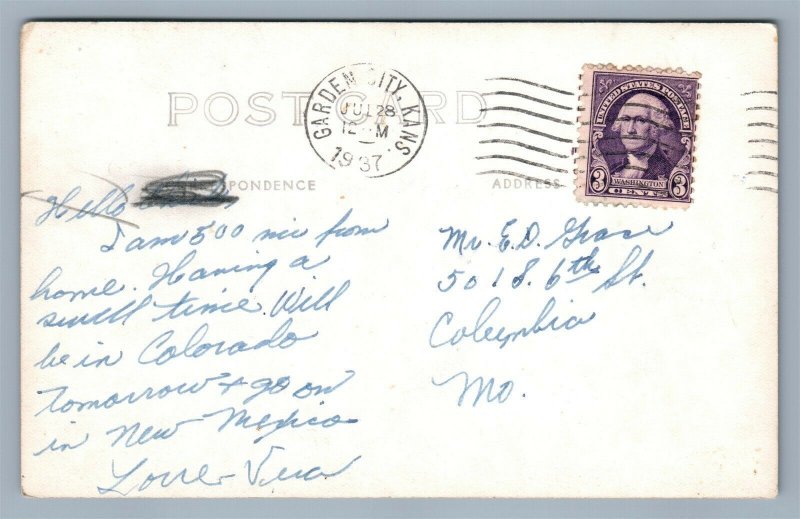 POST CARD
GARDEN CITY, KANS.
JUL 28
12 M
1937
UNITED STATES POSTAGE
3 WASHINGTON 3
CENTS
PONDENCE
ADDRESS
Hello
I am 500 mi from
home. Having a
swell time. Will
be in Colorado
tomorrow + go on
in New Mexico
Love - Vera
Mr. E.D. Grace
501 S. 6th St.
Columbia
Mo.